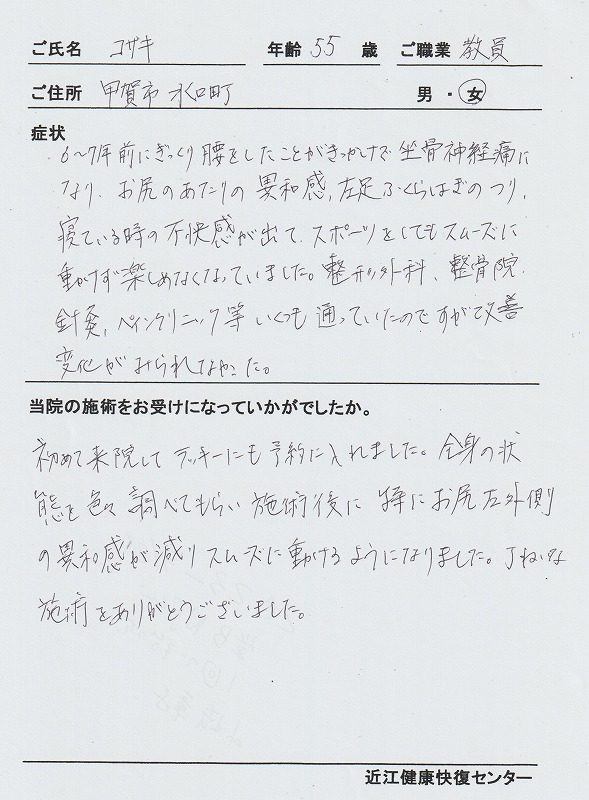 ご氏名 コザキ 年齢 55 歳 ご職業 教員
ご住所 甲賀市 水口町 男・女
症状
6〜7年前にぎっくり腰をしたことがきっかけで 坐骨神経痛に
なり、お尻のあたりの異和感、左足ふくらはぎのつり、
寝ている時の不快感が出て、スポーツをしてもスムーズに
動けず楽しめなくなっていました。整形外科、整骨院、
針灸、ペインクリニック等 いくつも通っていたのですが改善
変化がみられなかった。
当院の施術をお受けになっていかがでしたか。
初めて来院して ラッキーにも予約に入れました。全身の状
態を色々調べてもらい 施術後に 特にお尻左外側
の異和感が減り スムーズに動けるようになりました。丁ねいな
施術をありがとうございました。
近江健康快復センター